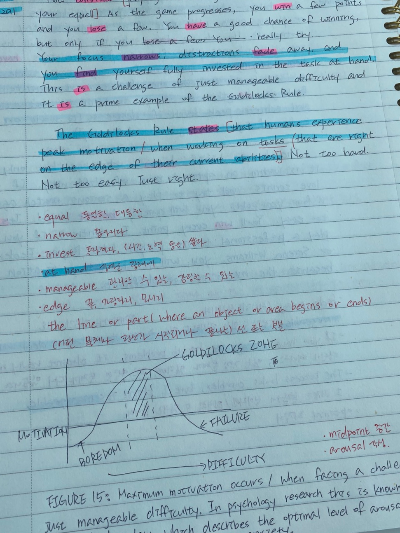 your equal] As the game progresses, you win a few points
and you lose a few. You have a good chance of winning,
but only if you really try.
Your focus narrows, distractions fade away, and
you find yourself fully invested in the task at hand.
This is a challenge of just manageable difficulty and
it is a prime example of the Goldilocks Rule.
The Goldilocks Rule states [that humans experience
peak motivation / when working on tasks (that are right
on the edge of their current abilities)] Not too hard.
Not too easy. Just right.
· equal 동등한, 대등한
· narrow 좁아지다
· invest 투자하다, (시간, 노력 등을) 쏟다
at hand
· manageable 관리할 수 있는, 감당할 수 있는
· edge 끝, 가장자리, 모서리
the line or part (where an object or area begins or ends)
GOLDILOCKS ZONE
MOTIVATION
BOREDOM
FAILURE
DIFFICULTY
· midpoint 중간
· arousal 각성
FIGURE 15: Maximum motivation occurs / when facing a challe
just manageable difficulty. In psychology research this is know
which describes the optimal level of arousa